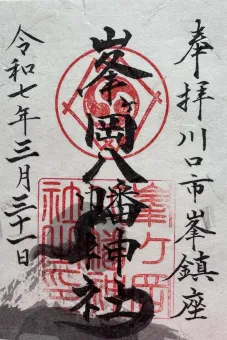 奉拝 川口市峯鎮座
峯ヶ岡八幡神社
令和七年三月三十一日
峯ヶ岡
八幡神
社之印